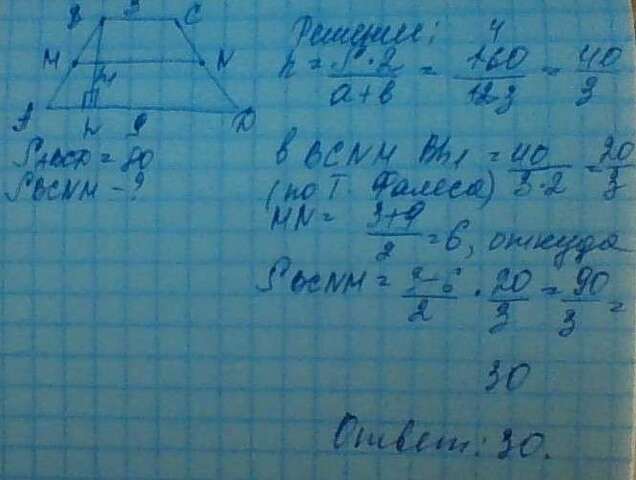 B 3 C
M N
h₁
A h 9 D
S ABCD = 80
S BCNM - ?
Решение:
h = S·2 / a+b = 160 / 12 3 = 40 / 3
4
в BCNM Bh₁ = 40 / 3·2 = 20 / 3
(по Т. Фалеса)
MN = 3+9 / 2 = 6, откуда
S BCNM = 3-6 / 2 · 20 / 3 = 90 / 3 =
30
Ответ: 30.